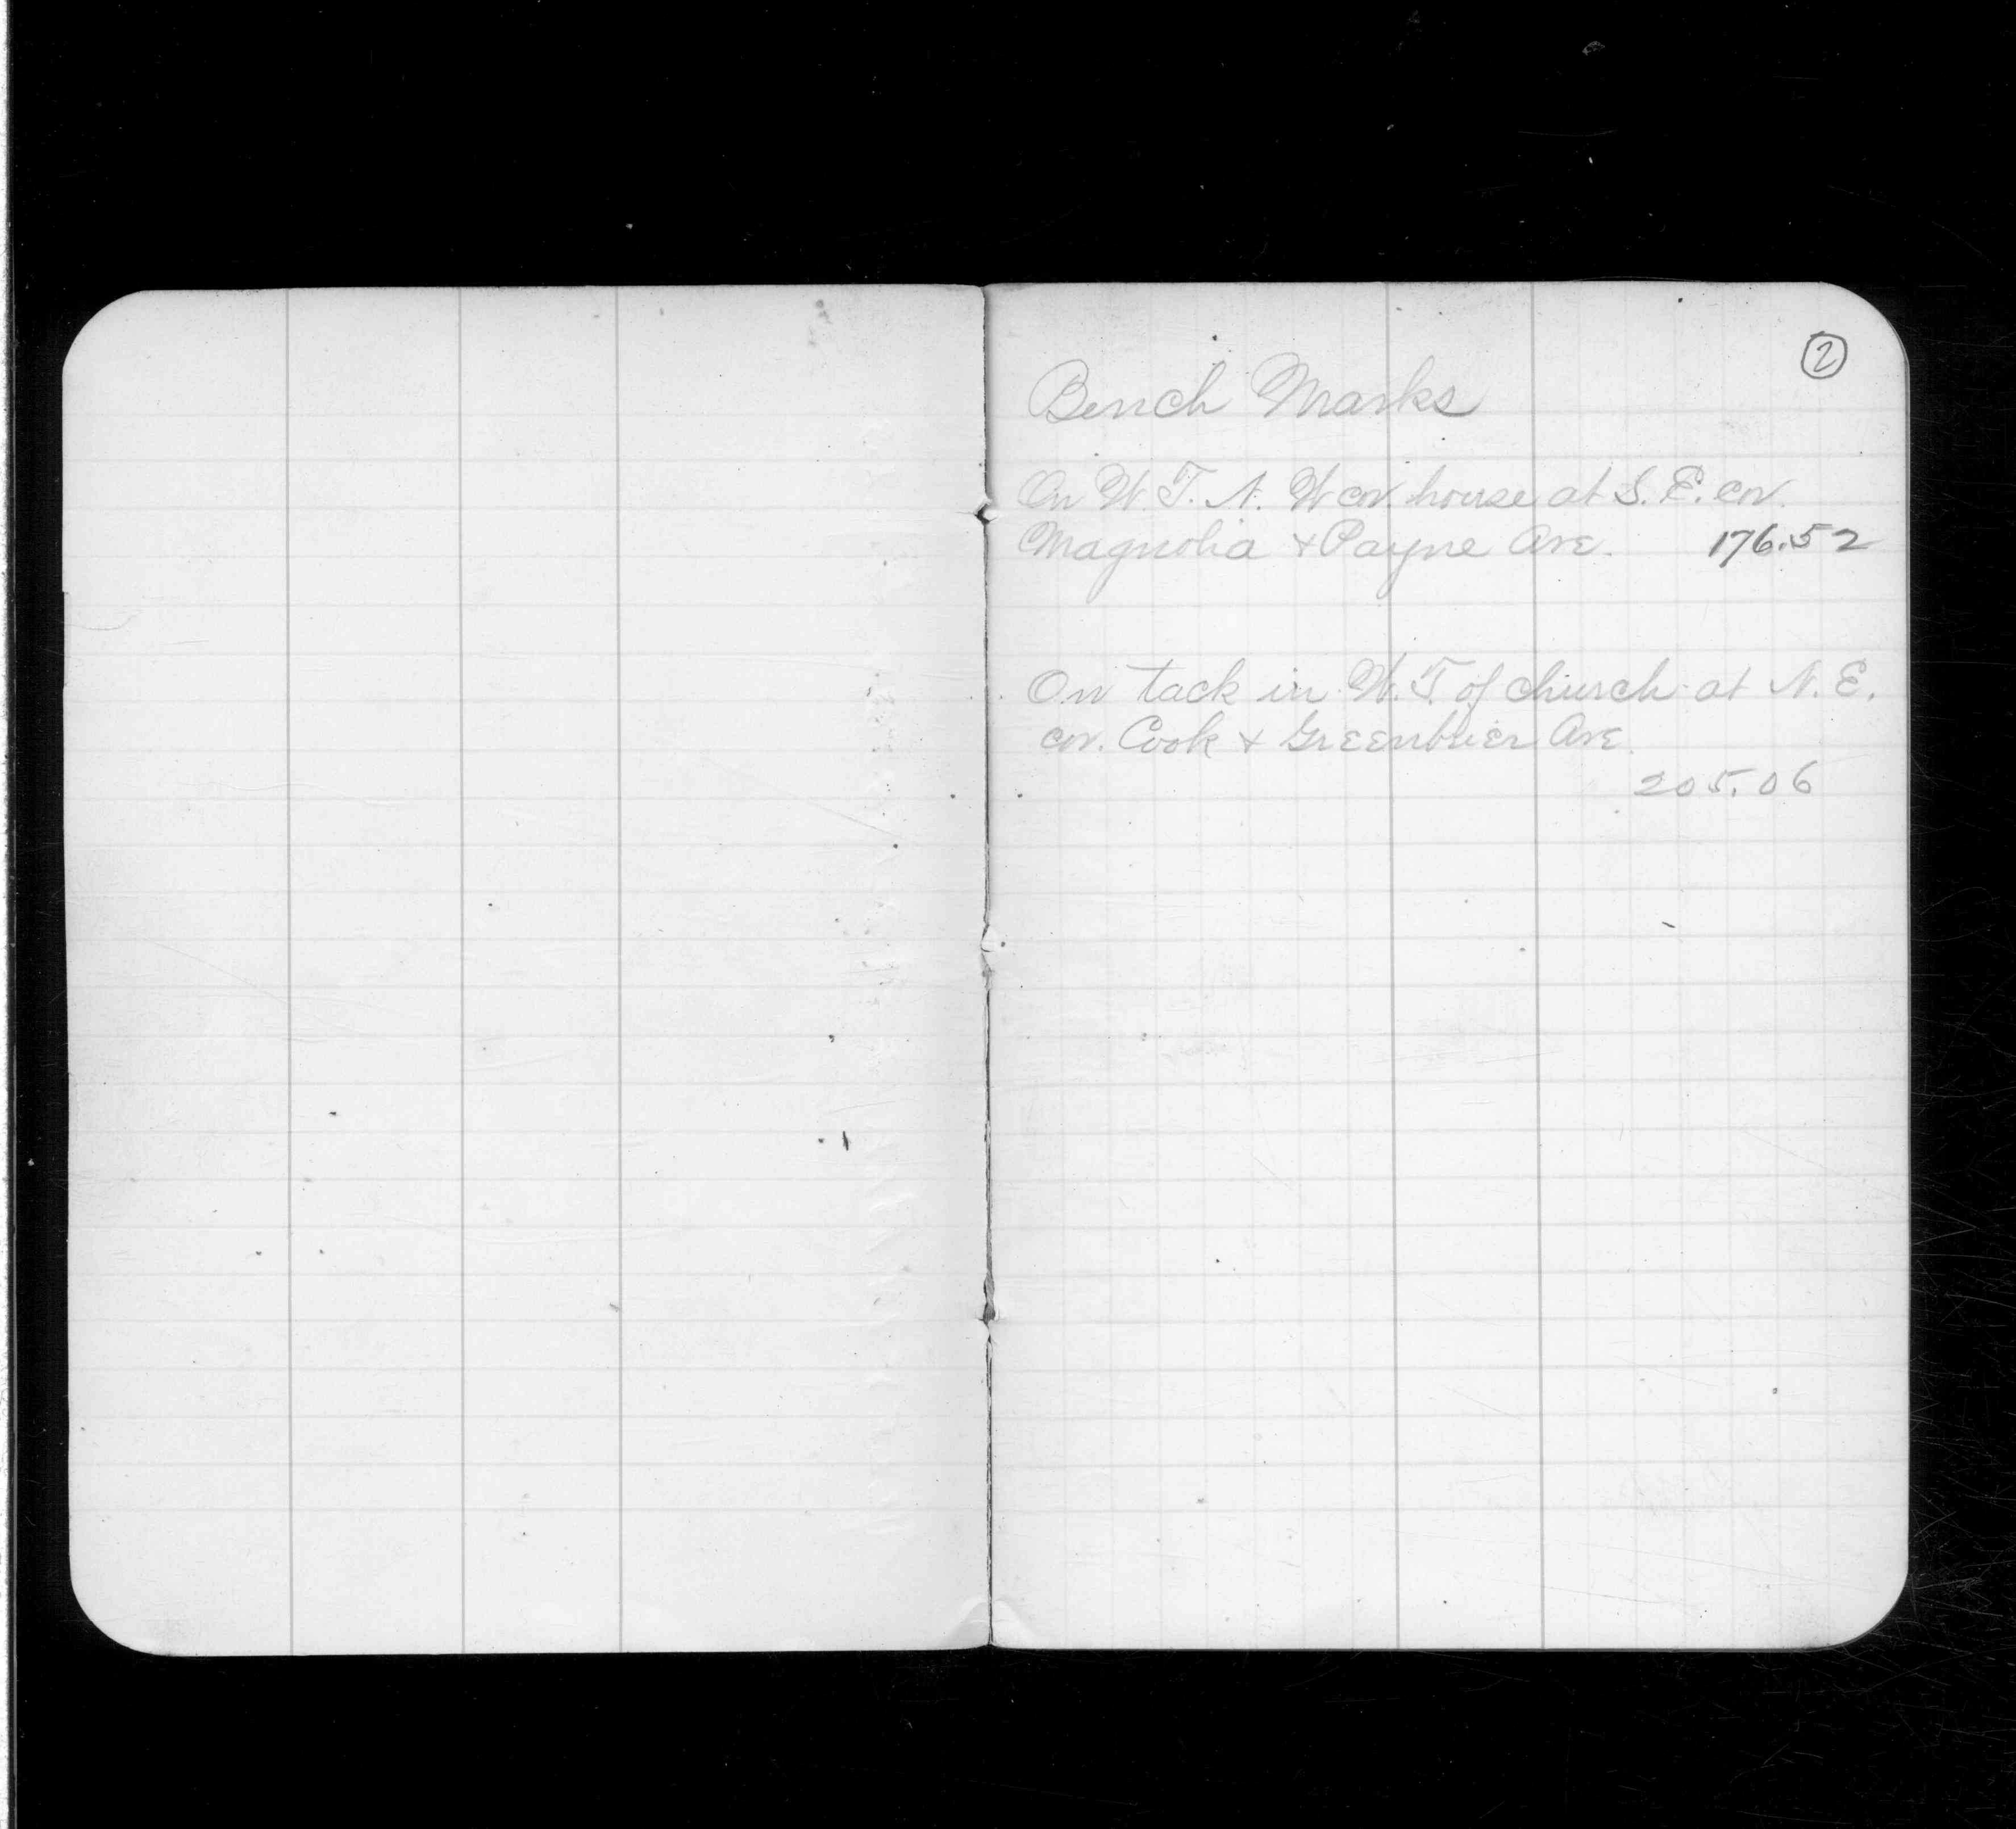 2
Bench Marks
On W. T. N. W cor. house at S. E. cor.
Magnolia + Payne Ave. 176.52
On tack in W. T. of church at N. E.
cor. Cook + Greenbrier Ave.
205.06